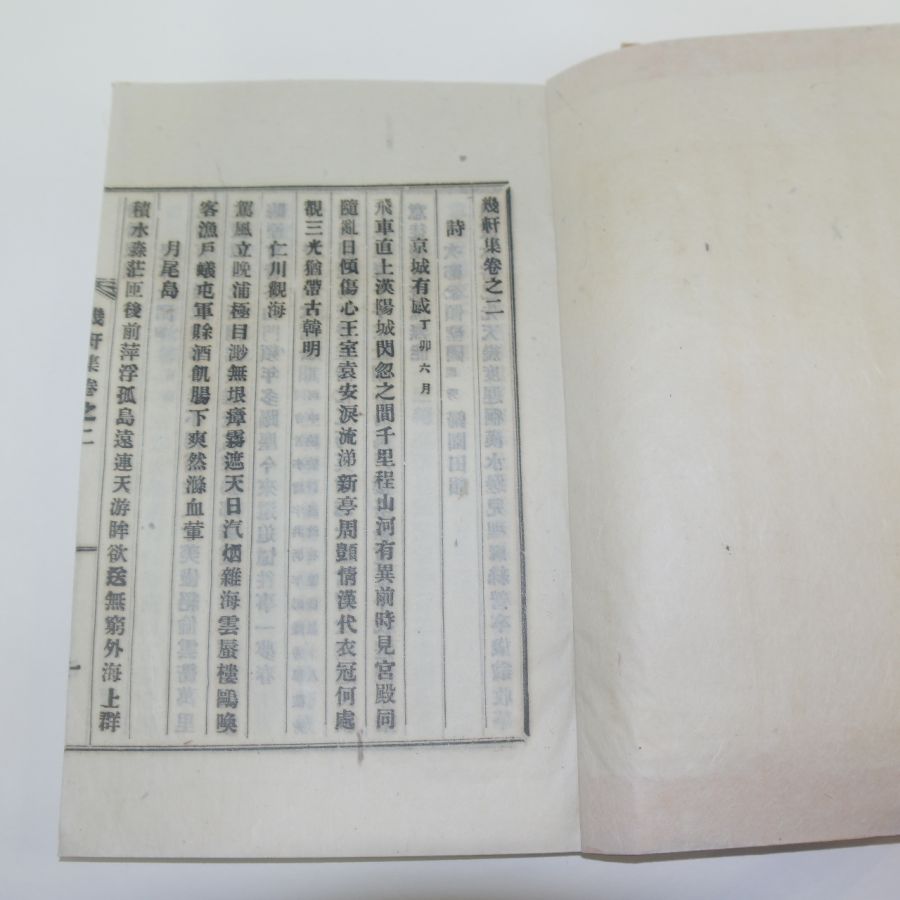 幾軒集卷之二
詩
京城有感 丁卯六月
飛車直上漢陽城閃忽之間千里程山河有異前時見宮殿同
隨亂日傾傷心王室袁安淚流涕新亭周顗情漢代衣冠何處
觀三光猶帶古韓明
仁川觀海
駕風立晩浦極目渺無垠瘴霧遮天日汽烟雜海雲蜃樓鷗喚
客漁戶蟻屯軍賖酒飢腸下爽然滌血葷
月尾島
積水淼茫匝後前萍浮孤島遠連天游眸欲送無窮外海上群
幾軒集卷之二
一